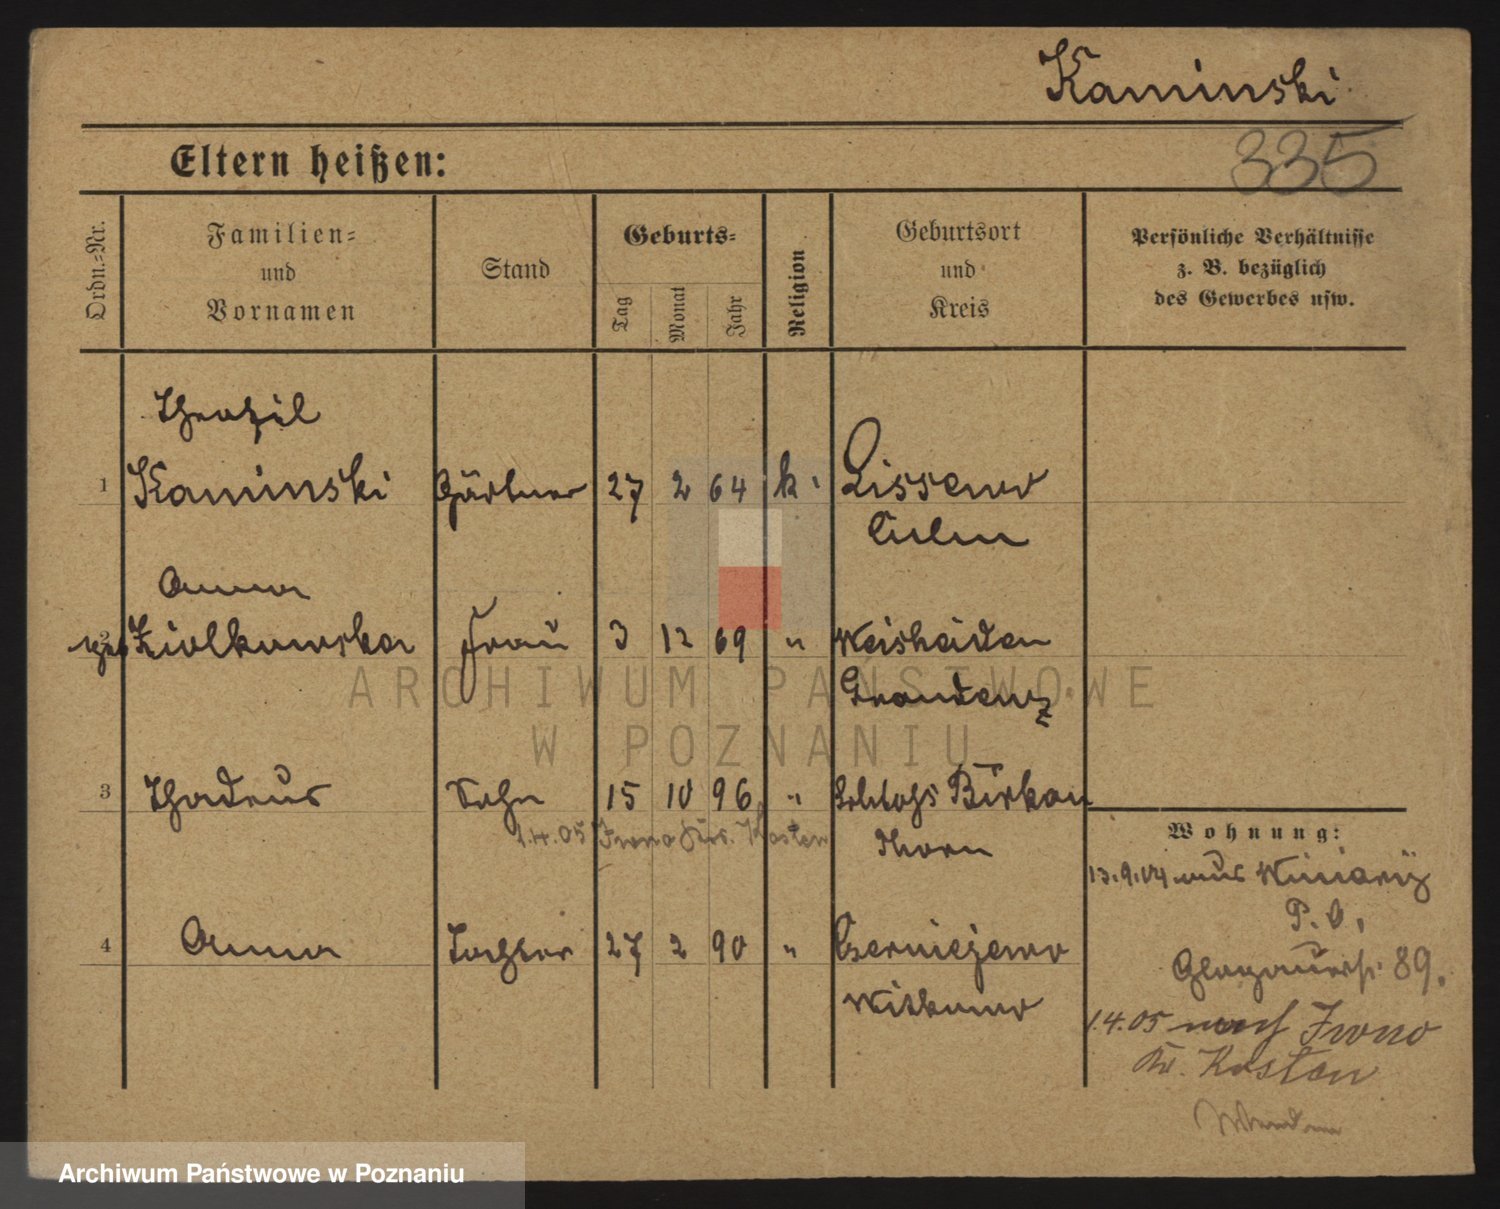 Kaminski
335
Eltern heißen:
Ordn.-Nr.
Familien-
und
Vornamen
Stand
Geburts-
Tag
Monat
Jahr
Religion
Geburtsort
und
Kreis
Persönliche Verhältnisse
z. B. bezüglich
des Gewerbes usw.
Theofil
1 Kaminski Gärtner 27 2 64 k. Lissewo
Culm
Anna
2 geb Ziolkowska Frau 3 12 69 " Weisheiden
Graudenz
3 Thadeus Sohn 15 10 96 " Schloss Birkau
1.4.05 Kosten
Thorn
4 Anna Tochter 27 2 90 " Czerniejewo
Witkowo
Wohnung:
13.9.04 aus Winiary
P. O.
Glogauerstr. 89.
1.4.05 nach
Kr. Kosten
ARCHIWUM PAŃSTWOWE
W POZNANIU
Archiwum Państwowe w Poznaniu